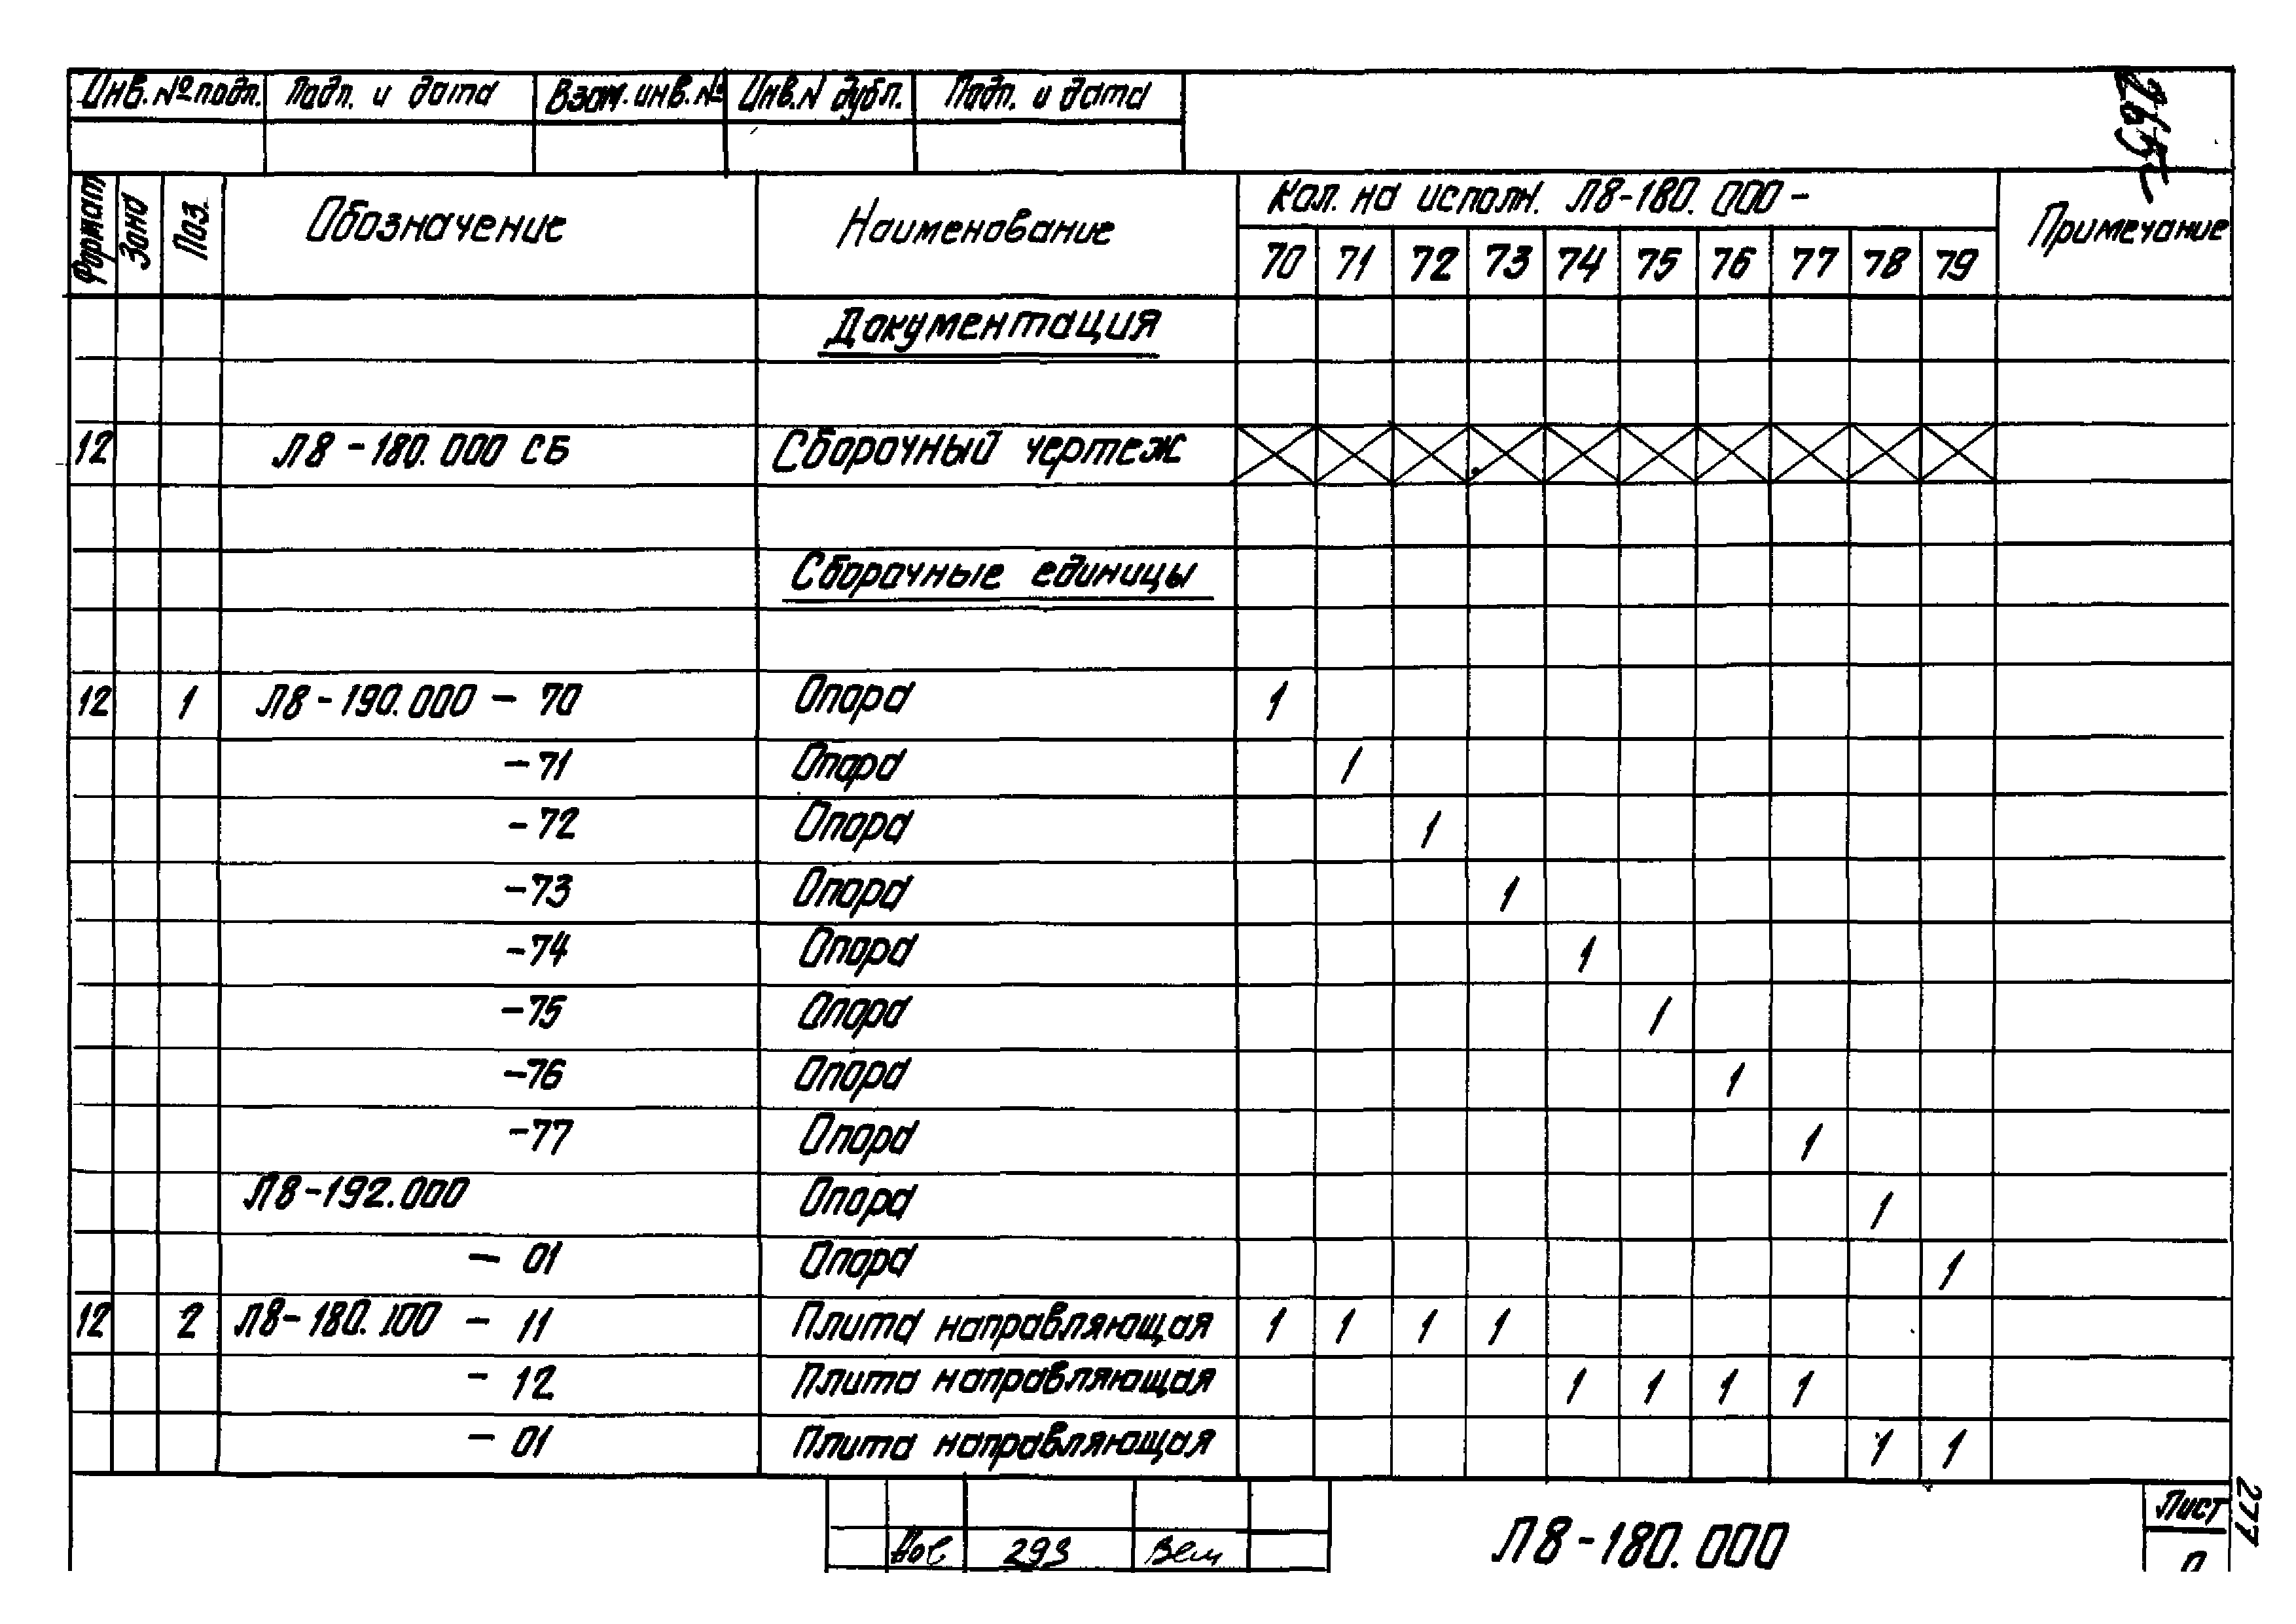 Инв. № подп. Подп. и дата Взам. инв. № Инв. N дубл. Подп. и дата
Формат Зона Поз. Обозначение Наименование Кол. на исполн. Л8-180.000 - Примечание
70 71 72 73 74 75 76 77 78 79
Документация
12 Л8-180.000 СБ Сборочный чертеж
Сборочные единицы
12 1 Л8-190.000 - 70 Опора 1
-71 Опора 1
-72 Опора 1
-73 Опора 1
-74 Опора 1
-75 Опора 1
-76 Опора 1
-77 Опора 1
Л8-192.000 Опора 1
- 01 Опора 1
12 2 Л8-180.100 - 11 Плита направляющая 1 1 1 1
- 12 Плита направляющая 1 1 1 1
- 01 Плита направляющая 1 1
293
Л8-180.000
Лист
277